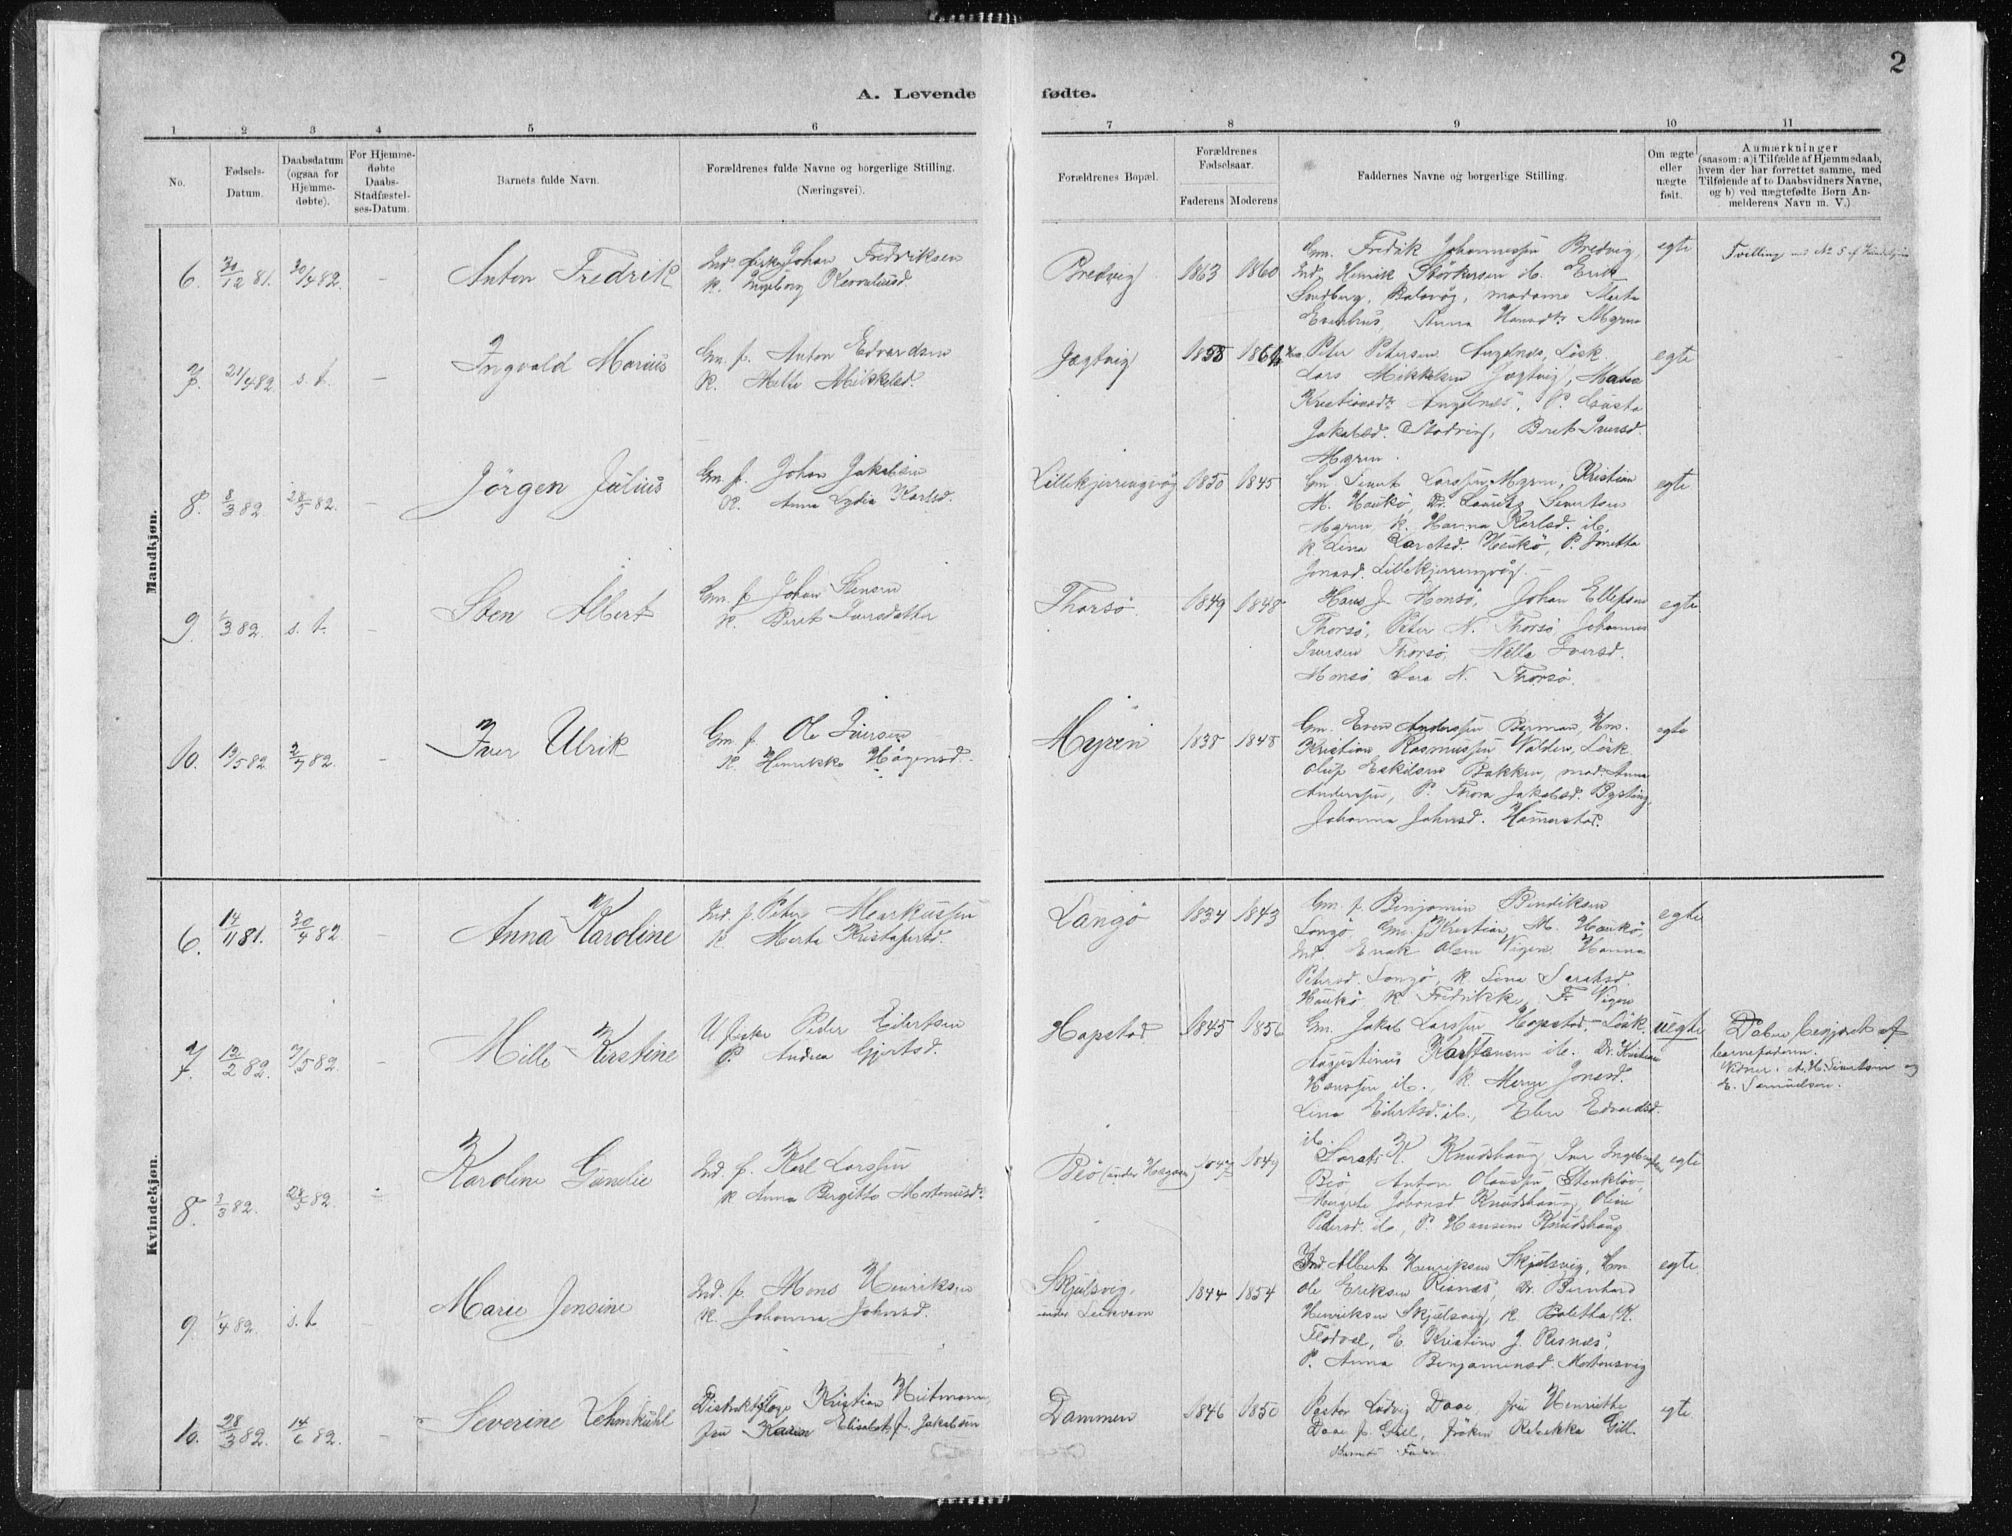 2
A. Levende fødte.
1 2 3 4 5 6 7 8 9 10 11
No.
Fødsels-
Datum.
Daabsdatum
(ogsaa for
Hjemme-
døbte).
For Hjemme-
døbte
Daabs-
Stadfæstel-
ses-Datum.
Barnets fulde Navn.
Forældrenes fulde Navne og borgerlige Stilling.
(Næringsvei).
Forældrenes Bopæl.
Forældrenes
Fødselsaar.
Faderens Moderens
Faddernes Navne og borgerlige Stilling.
Om ægte
eller
uægte
født.
Anmærkninger
(saasom: a) i Tilfælde af Hjemmedaab,
hvem der har forrettet samme, med
Tilføiende af to Daabsvidners Navne,
og b) ved uægtefødte Børn An-
melderens Navn m. V.)
Mandkjøn.
6. 30/12 81. 30/4 82. - Anton Fredrik
Ind. Johan Fredriksen
K. Ingeborg
Bredvig 1863 1860
Gm. Fredrik Johannessen Bredvig,
Ind. Henrik Storkersen ib. Erik
Sundberg, madame
Anna Hansdt. Myren
egte
Tvilling
7. 21/4 82 s. t. - Ingvald Marius
Gm. f. Anton Edvardsen
K. Mette Mikkelsd.
Jægtvig 1858
Peter Petersen Angelnes, Løsk.
Lars Mikkelsen Jægtvig,
Kristiansdt. Angelnes, P.
Jakobsd. Berit Iversd.
Myren.
egte
8. 8/3 82 28/5 82. - Jörgen Julius
Gm. f. Johan Jakobsen
K. Anna Lydia Karlsd.
Lillekjerringvåg 1850 1845
Gm. Sivert Larssen Myren, Kristian
M. Haukö, Dr. Lauritz Sivertsen
Myren, K. Hanna Karlsd. ib.
K. Lina Haukö, P. Jonetta
Jonasd. Lillekjerringvåg.
egte
9. 1/3 82. s. t. - Sten Albert
Gm. f. Johan Stensen
K. Berit Iversdatter
Thorsö. 1849 1848
Hans J. Monsö, Johan Ellefsen
Thorsö, Peter N. Thorsö Johannes
Iversen Thorsö, Nille Iversd.
Monsö, Sara N. Thorsö.
egte
10. 19/5 82. 2/7 82. - Iver Ulrik
Gm. f. Ole Iversen
K. Henrikke Hågensd.
Myren 1838 1848
Gm. Even Anderssen Gm.
Kristian Rasmussen Valden, Løsk.
Oluf Eskilsen Bakken, mad. Anna
Anderssen, P. Thora Jakobsd.
Johanna Johnsd. Hamerstad.
egte
Kvindekjøn.
6. 14/11 81. 30/4 82 - Anna Karoline
Ind. f. Peter Markussen
K. Marta Kristofersd.
Langö 1834 1843
Gm. f. Benjamin Bendiksen
Langö, Gm. f. Kristian M. Haukö,
Ind. Olsen Vigen Hanna
Petersd. Langö, K. Lina
Haukö, K. Fredrikke F. Vigen
egte
7. 12/2 82. 7/5 82. - Mille Kirstine
U. fisker Peder Eilertsen
P. Andrea Gjertsd.
Hopstad. 1845 1856
Gm. Jakob Larssen Hopstad, Løsk.
Augustinus Karstensen ib. Dr. Kristian
Hanssen ib., K. Jonasd.
Lina Eilertsd. ib., Elen Edvardsd.
ib.
uegte
Daben begjært af
barnefaderen.
Vidner: A. H. Sivertsen og
E. Samuelsen.
8. 3/3 82. 28/5 82. - Karoline Gunelie
Ind. f. Karl Larssen
K. Anna Birgitte Mortensdt.
Beö (under Hagen) 1847 1849
K. Knudshaug Iver
Beö, Anton Olaussen Stenklöv,
Margrete Johansd. Knudshaug, Oline
Petersd. ib., P. Hansine Knudshaug
egte
9. 1/4 82. s. t. - Marie Jensine
Ind. f. Mons Henriksen
K. Johanna Johnsd.
Skjølsvig
under Leikvam 1844 1854
Ind. Albert Henriksen Skjølsvig, Gm
Ole Eriksen Risnes, Dr. Bernhard
Henriksen Skjølsvig, K. H.
E. Kristine J. Risnes,
P. Anna Benjaminsd. Mortensvig
egte
10. 28/3 82. 14/6 82. - Severine Lehmkuhl
Distriktslæge Kristian Heitmann,
Fru Karen Elisabet f. Jakobsen
Dammen 1846 1850
Pastor Ludvig Daae, fru Henriette
Daae f. Gill, fröken Rebekka Gill.
Barnets Fader
egte